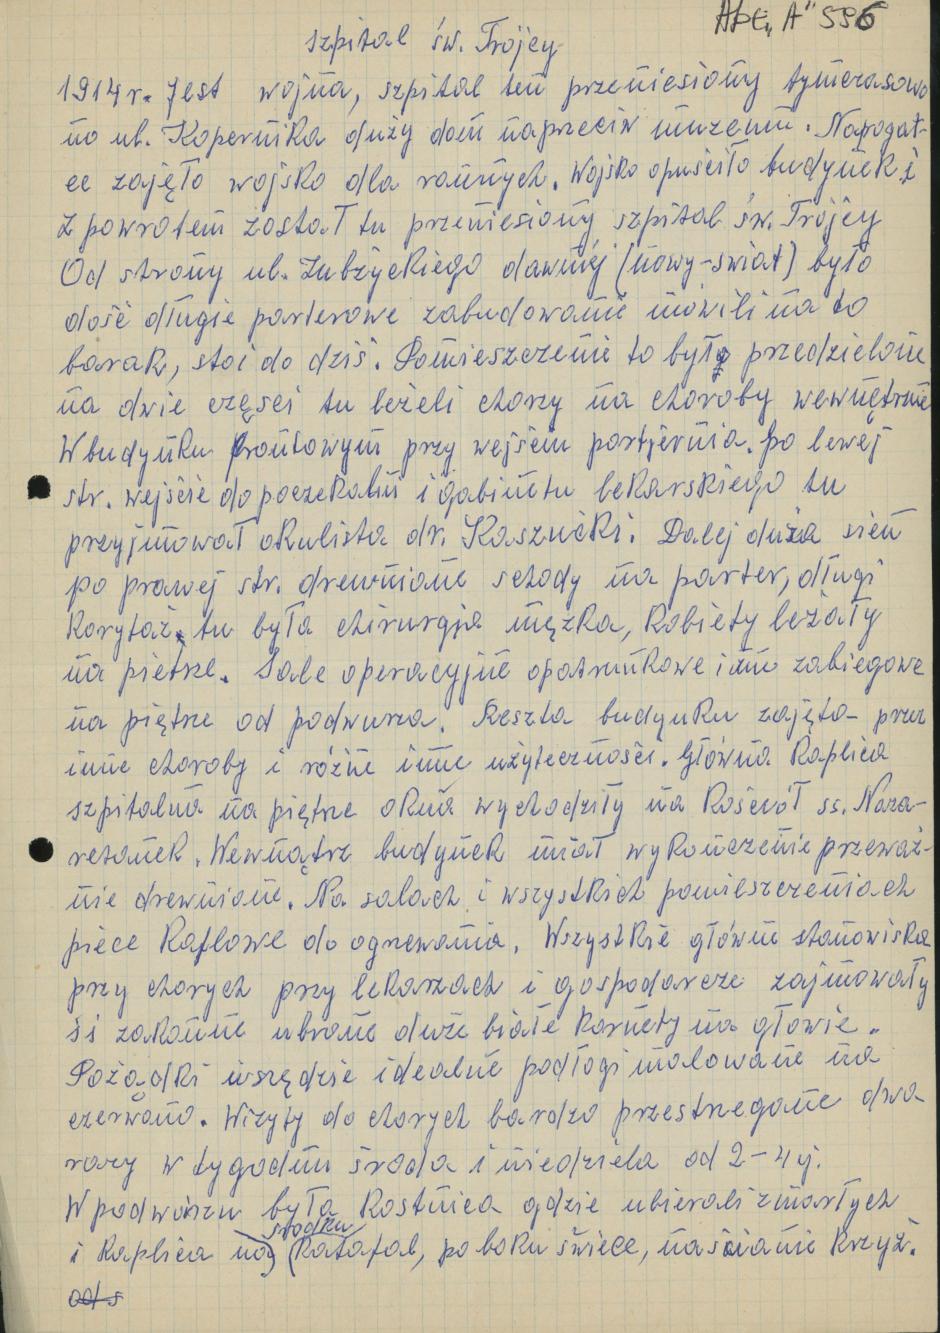 Abc „A" 596
szpital św. Trojcy
1914 r. Jest wojna, szpital ten przeniesiony tymczasowo
na ul. Kopernika duży dom naprzeciw muzeum. Napogat-
ce zajęło wojsko dla rannych. Wojsko opuściło budynek i
z powrotem został tu przeniesiony szpital św. Trojcy
Od strony ul. Zubżyckiego dawniej (nowy-swiat) było
dość długie parterowe zabudowanie mówili na to
barak, stoi do dziś. Pomieszczenie to było przedzielone
na dwie częsci tu leżeli chorzy na choroby wewnętrzne
W budynku frontowym przy wejściu portjernia. po lewej
str. wejście do poczekalni i gabinetu lekarskiego tu
przyjmował okulista dr. Kasznicki. Dalej duża sień
po prawej str. drewniane schody na parter, długi
Korytaż tu była chirurgja męzka, Kobiety leżały
na piętrze. Sale operacyjne opatrunkowe i inne zabiegowe
na piętrze od podwurza. Reszta budynku zajęta - przez
inne choroby i różne inne użyteczności. Główna Kaplica
szpitalna na piętrze okna wychodziły na Kościół ss. Naza-
retanek. Wewnątrz budynek miał wykończenie przeważ-
nie drewniane. Na salach i wszystkich pomieszczeniach
piece Kaflowe do ogrzewania. Wszystkie główne stanowiska
przy chorych przy lekarzach i gospodarcze zajmowały
śś zakonne ubrane duże białe Kornety na głowie.
Pożądki wszędzie idealne podłogi malowane na
czerwono. Wizyty do chorych bardzo przestrzegane dwa
razy w tygodniu środa i niedziela od 2-4 ej.
W podwórzu była Kostnica gdzie ubierali zmarłych
środku
i Kaplica na (Katafal, po boku świece, na ścianie Krzyż.
od s